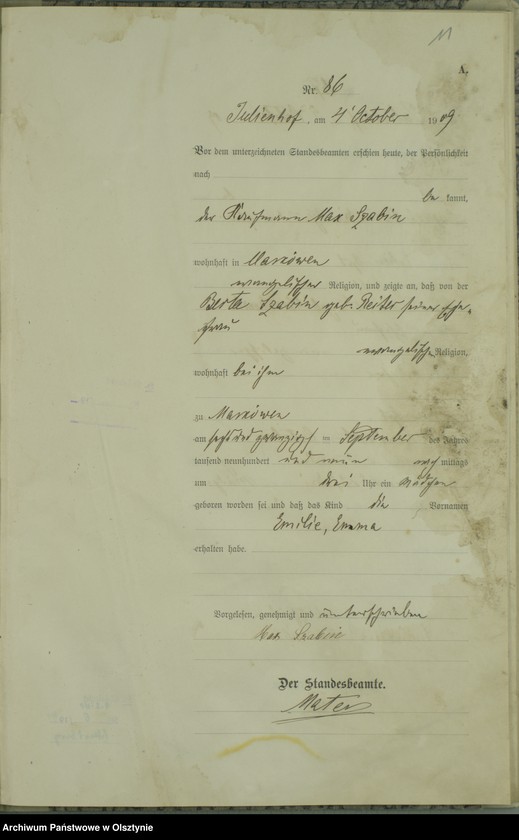 11
A.
Nr. 86
Julienhof, am 4' October 1909
Vor dem unterzeichneten Standesbeamten erschien heute, der Persönlichkeit
nach
be kannt,
der Kaufmann Max Szabin
wohnhaft in Marxöwen
evangelischer Religion, und zeigte an, daß von der
Berta Szabin geb. Reiter seiner Ehe-
frau
evangelischer Religion,
wohnhaft bei ihm
zu Marxöwen
am sechs und zwanzigsten September des Jahres
tausend neunhundert und neun nach mittags
um drei Uhr ein Mädchen
geboren worden sei und daß das Kind die Vornamen
Emilie, Emma
erhalten habe.
Vorgelesen, genehmigt und unterschrieben
Max Szabin
Der Standesbeamte.
Archiwum Państwowe w Olsztynie